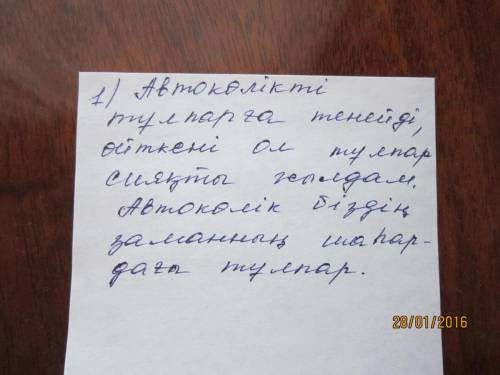 1) Автокөлікті
тұлпарға теңейді,
өйткені ол тұлпар
сияқты жылдам.
Автокөлік біздің
заманның шаһар-
дағы тұлпар.
28/01/2016